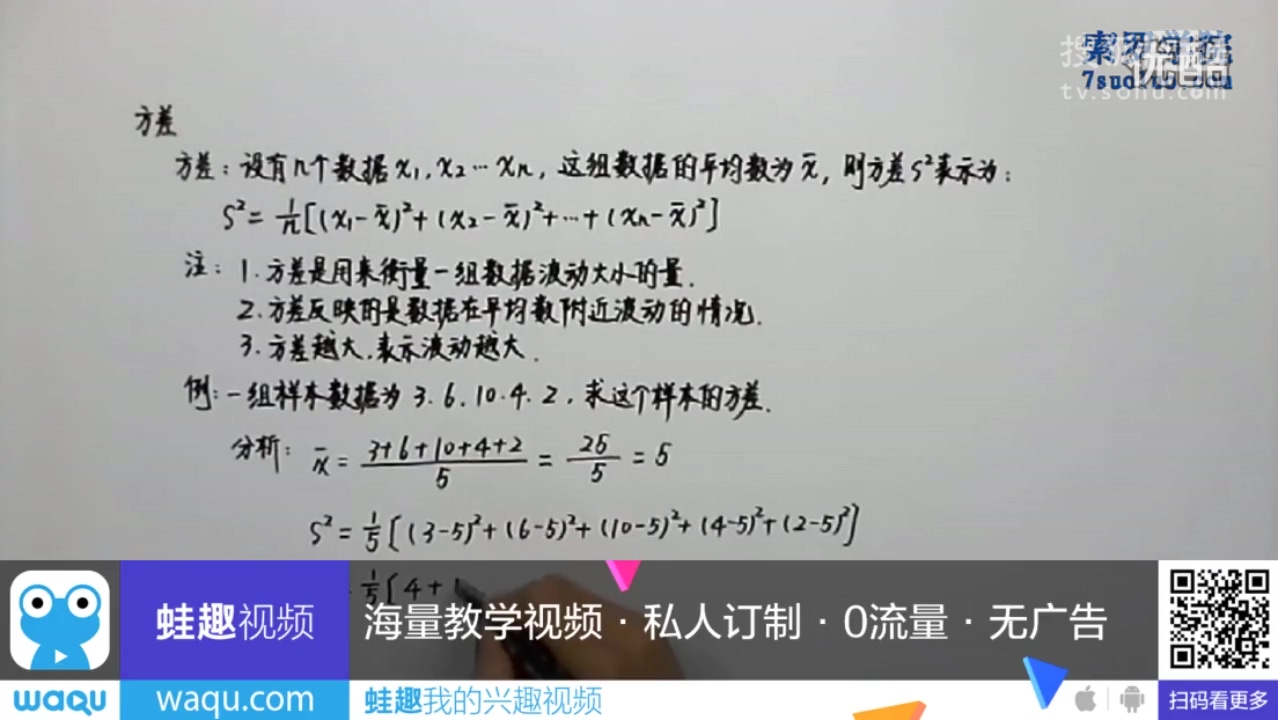 tv.sohu.com
优酷
方差
方差：设有n个数据x₁,x₂…xₙ，这组数据的平均数为x̄，则方差S²表示为：
S²=1/n[(x₁-x̄)²+(x₂-x̄)²+…+(xₙ-x̄)²]
注：1.方差是用来衡量一组数据波动大小的量.
2.方差反映的是数据在平均数附近波动的情况.
3.方差越大.表示波动越大.
例：一组样本数据为3.6.10.4.2，求这个样本的方差.
分析：x̄=(3+6+10+4+2)/5=25/5=5
S²=1/5[(3-5)²+(6-5)²+(10-5)²+(4-5)²+(2-5)²]
=1/5[4+1
蛙趣视频
海量教学视频·私人订制·0流量·无广告
waqu
waqu.com
蛙趣我的兴趣视频
扫码看更多